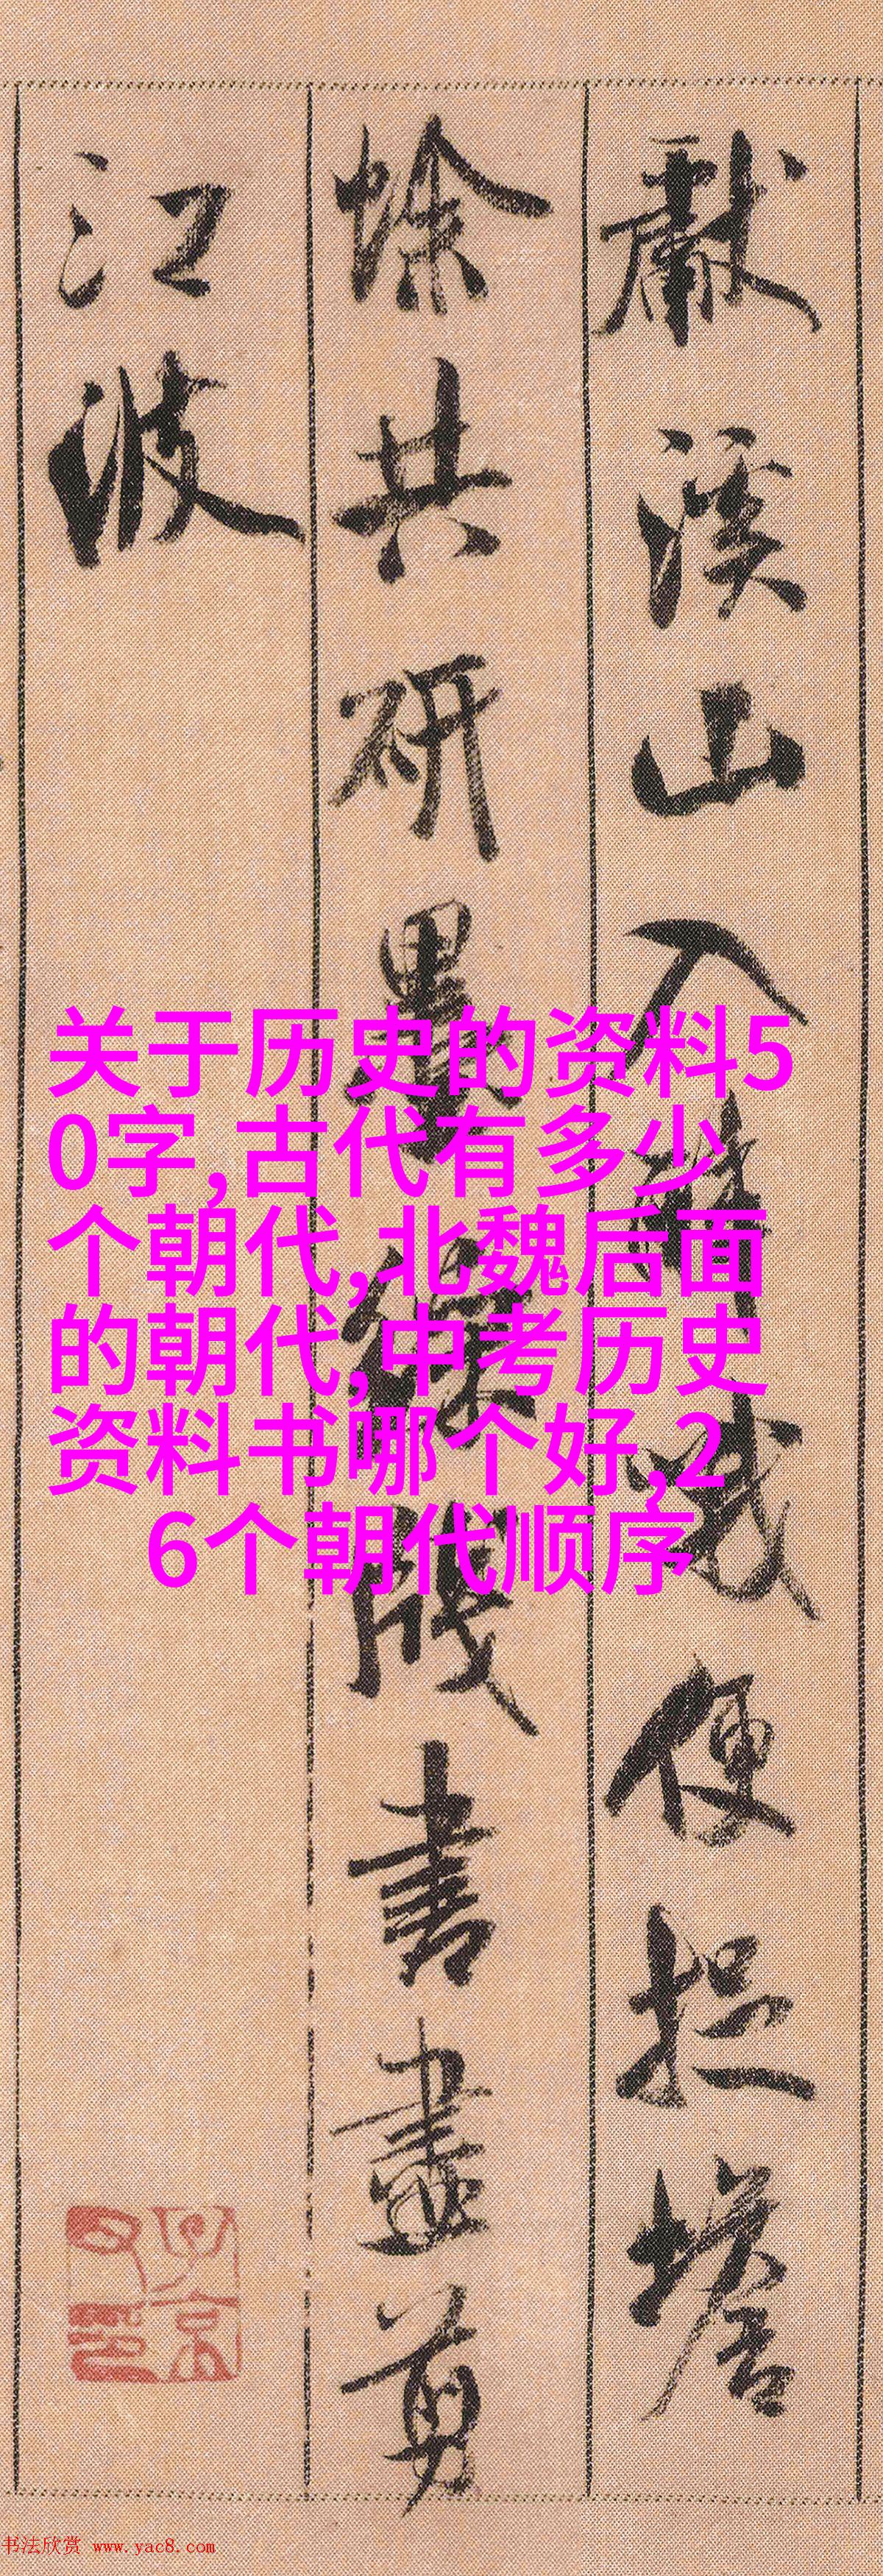 獻溪山入醉哦便捉蟾
蜍共研墨綵牋書盡剪
江波
关于历史的资料5
0字,古代有多少
个朝代,北魏后面
的朝代,中考历史
资料书哪个好,2
6个朝代顺序
书法欣赏 www.yac8.com